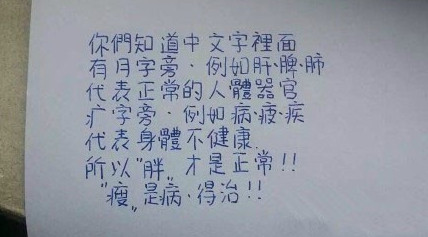 你們知道中文字裡面
有月字旁、例如肝、脾、肺
代表正常的人體器官
疒字旁、例如病、疲、疾
代表身體不健康.
所以"胖"才是正常!!
"瘦"是病、得治!!